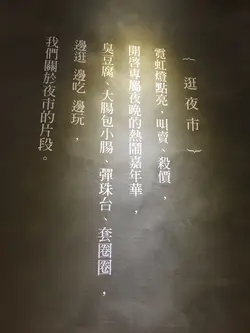 ︵逛夜市︶
霓虹燈點亮，叫賣、殺價，
開啓專屬夜晚的熱鬧嘉年華，
臭豆腐、大腸包小腸、彈珠台、套圈圈，
邊逛 邊吃 邊玩，
我們關於夜市的片段。